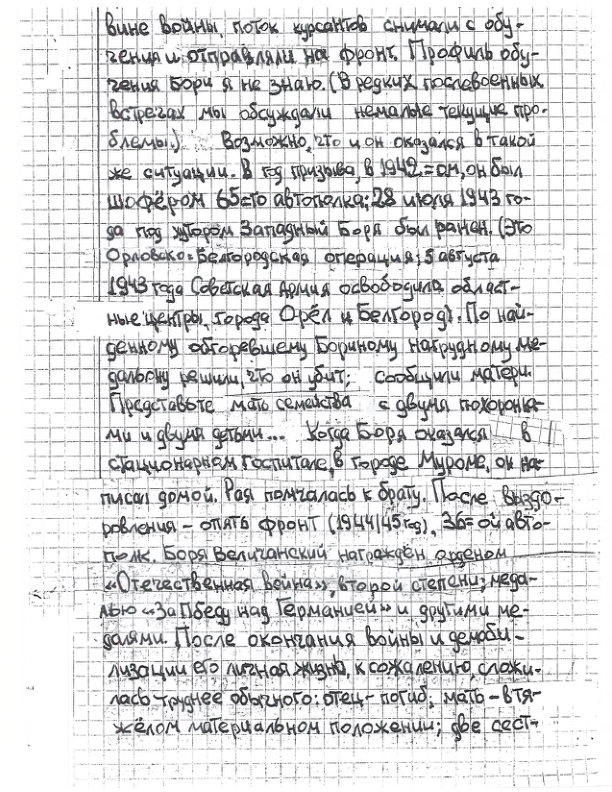 вине войны, поток курсантов снимали с обу-
чения и отправляли на фронт. Профиль обу-
чения Бори я не знаю. (В редких послевоенных
встречах мы обсуждали немалые текущие про-
блемы.) Возможно, что и он оказался в такой
же ситуации. В год призыва, в 1942=ом, он был
шофёром 65=го автополка; 28 июля 1943 го-
да под хутором Западный Боря был ранен. (Это
Орловско=Белгородская операция; 5 августа
1943 года Советская Армия освободила област-
ные центры, города Орёл и Белгород). По най-
денному обгоревшему Бориному нагрудному ме-
дальону решили, что он убит; сообщили матери.
Представьте мать семейства с двумя похоронка-
ми и двумя детьми... Когда Боря оказался в
стационарном госпитале, в городе Муроме, он на-
писал домой. Рая помчалась к брату. После выздо-
ровления - опять фронт (1944/45 год), 36=ой авто-
полк. Боря Величанский награждён орденом
«Отечественная война», второй степени; меда-
лью «За Победу над Германией» и другими ме-
далями. После окончания войны и демоби-
лизации его личная жизнь, к сожалению, сложи-
лась труднее обычного: отец - погиб; мать - в тя-
жёлом материальном положении; две сест-